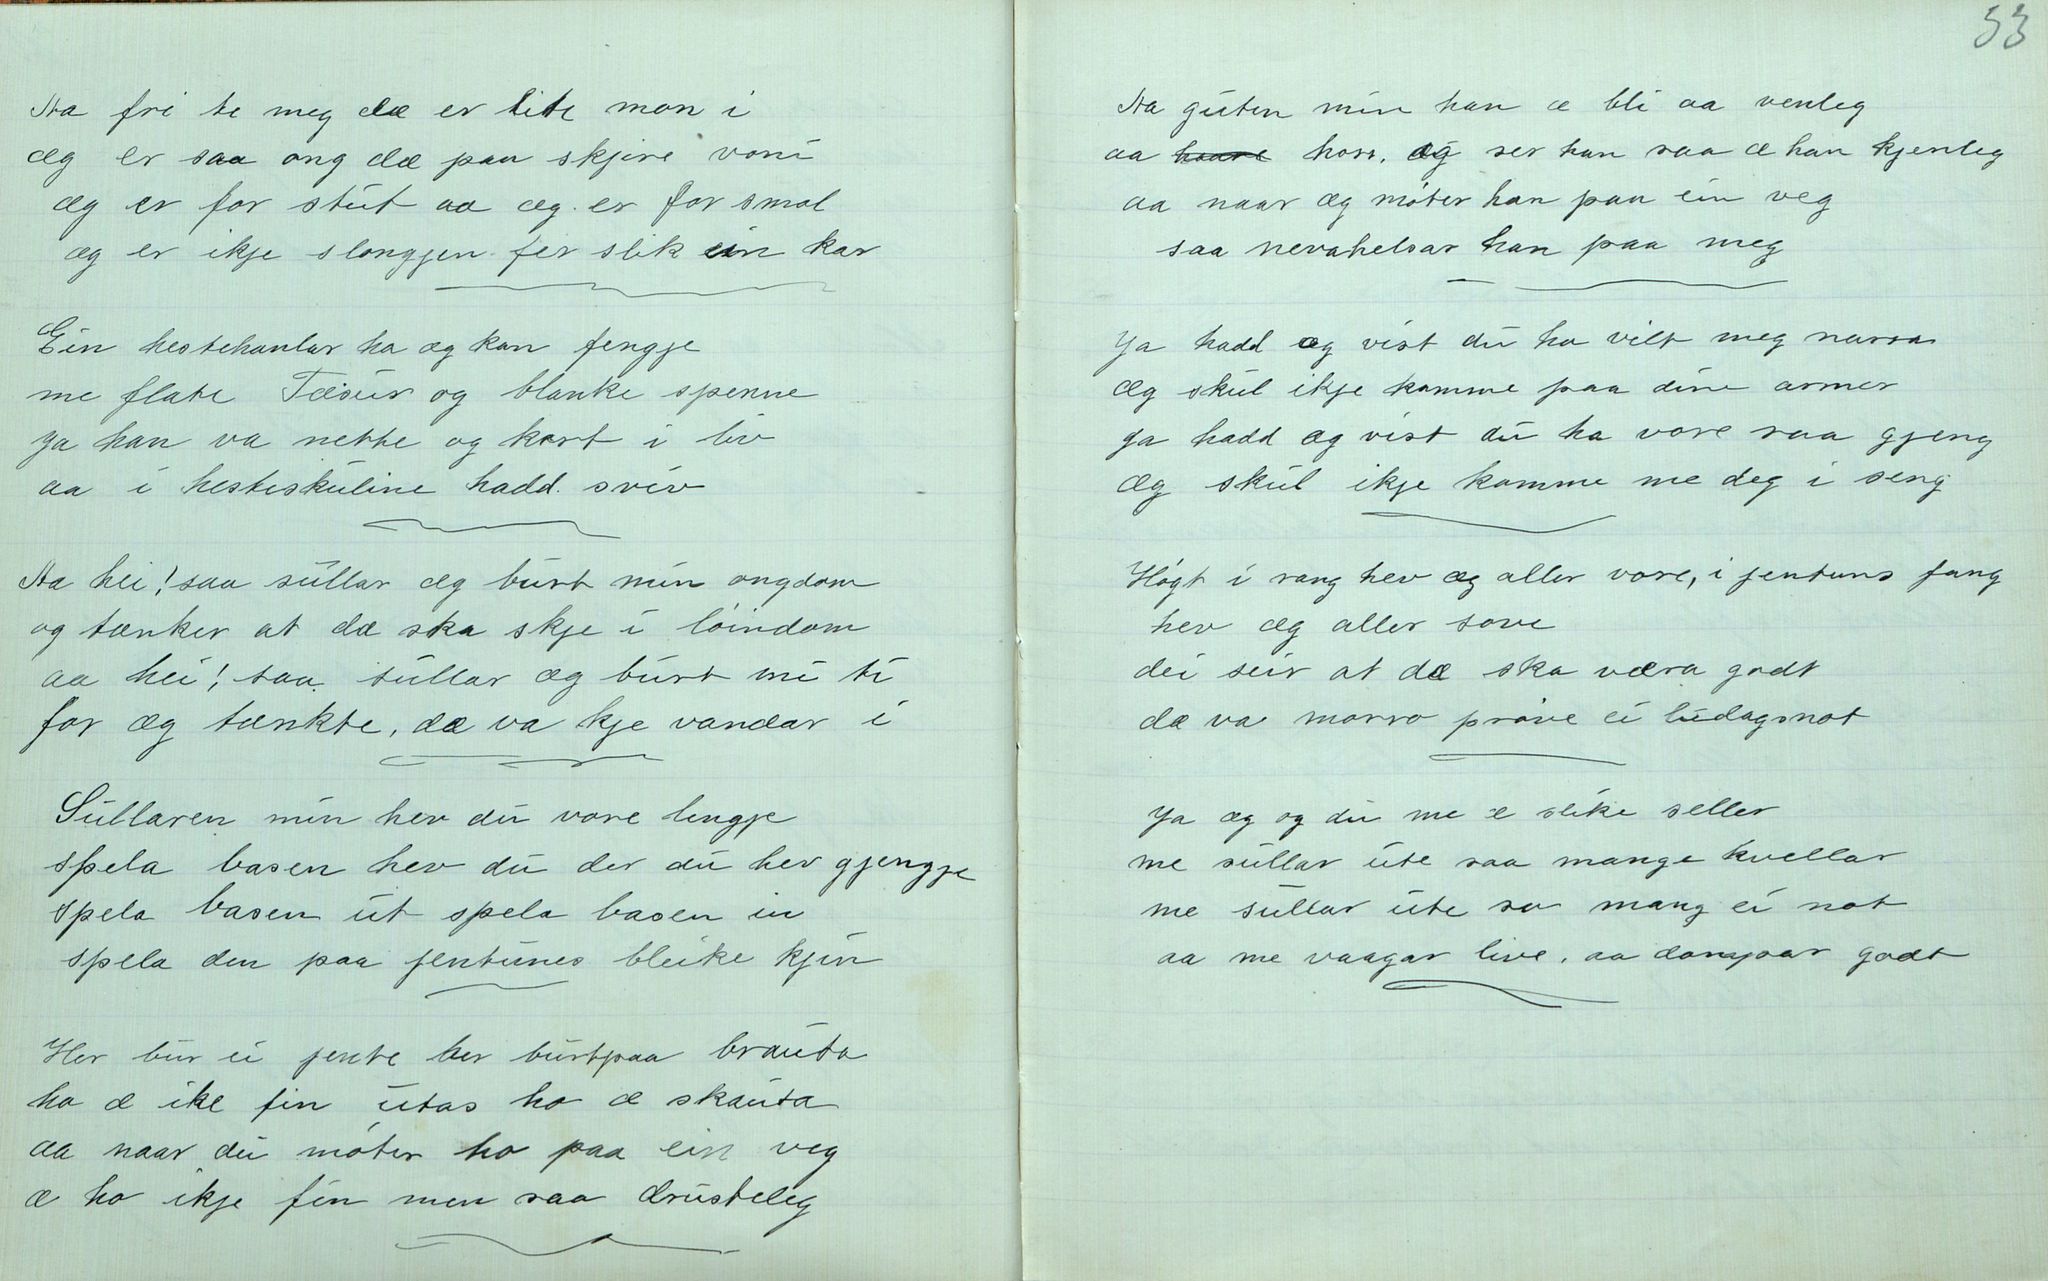 Aa fri te meg dæ er lite mon i
æg er saa ong dæ paa skjire voni
æg er for stut aa æg er for smal
æg er ikje slongjen fer slik ein kar
Ein hestehanlar ha æg kan fengje
me flate Tæsur og blanke spenne
ja han va nette og kort i liv
aa i hesteskuline hadd sviv
Aa hei! saa sullar æg burt min ongdom
og tænker at dæ ska skje i löindom
aa hei! saa sullar æg burt mi ti
for æg tænkte, dæ va kje vandar i
Sullaren min hev du vore lengje
spela basen hev du der du hev gjengje
spela basen ut spela basen in
spela den paa jentunes bleike kjin
Her bur ei jente her burtpaa brauta
ho æ ike fin utas ho æ skauta
aa naar du möter ho paa ein veg
æ ho ikje fin men saa drusteleg
53
Aa guten min han æ bli aa venleg
aa haare hoss. æg ser han saa æ han kjenleg
aa naar æg möter han paa ein veg
saa nevahelsar han paa meg
Ja hadd æg vist du ha vilt meg narra
æg skul ikje komme paa dine armer
ja hadd æg vist du ha vore saa gjeng
æg skul ikje komme me deg i seng
Högt i rang hev æg aller vore, i jentuns fang
hev æg aller sove
dei seir at dæ ska væra godt
dæ va morro pröve ei ludagsnot
Ja æg og du me æ slike seller
me sullar ute saa mange kvellar
me sullar ute so mang ei not
aa me vaagar live, aa dansar godt